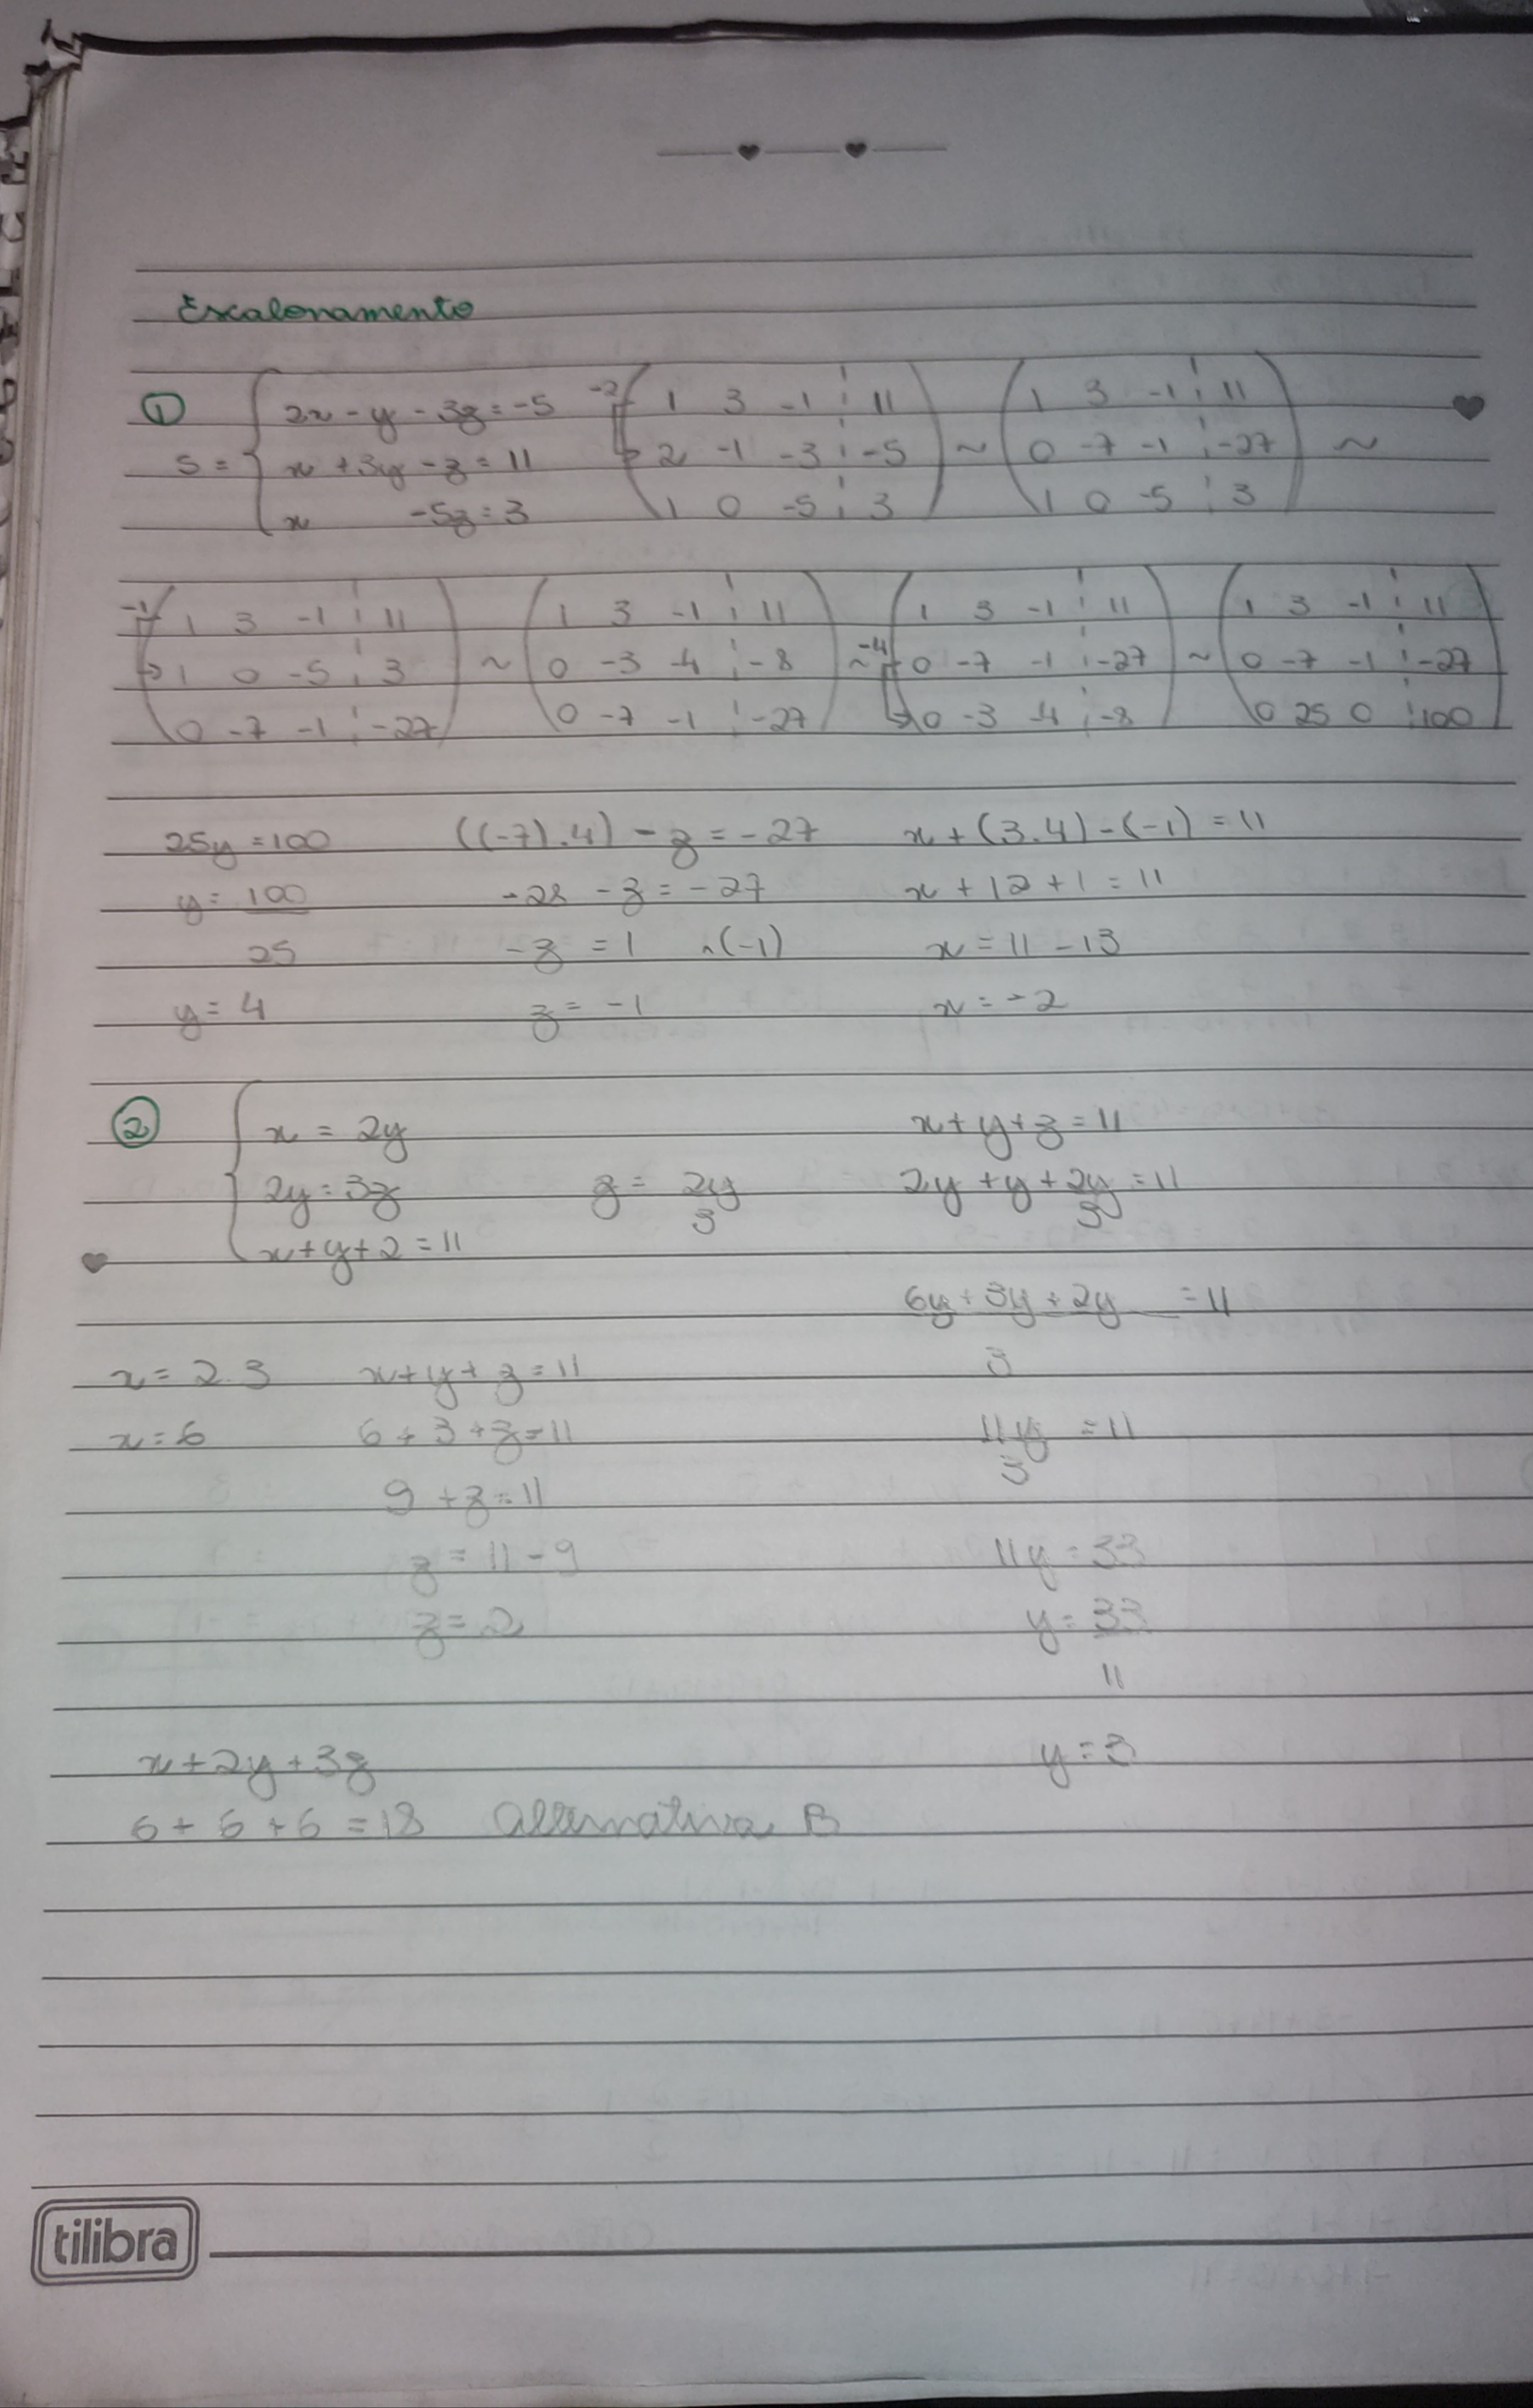 Escalonamento
① S = { 2x - y - 3z = -5
x + 3y - z = 11
x -5z = 3
-2 ( 1 3 -1 ¦ 11
2 -1 -3 ¦ -5
1 0 -5 ¦ 3 ) ~
( 1 3 -1 ¦ 11
0 -7 -1 ¦ -27
1 0 -5 ¦ 3 ) ~
-1 ( 1 3 -1 ¦ 11
1 0 -5 ¦ 3
0 -7 -1 ¦ -27 ) ~
( 1 3 -1 ¦ 11
0 -3 -4 ¦ -8
0 -7 -1 ¦ -27 ) ~
-4 ( 1 3 -1 ¦ 11
0 -7 -1 ¦ -27
0 -3 -4 ¦ -8 ) ~
( 1 3 -1 ¦ 11
0 -7 -1 ¦ -27
0 25 0 ¦ 100 )
25y = 100
y = 100/25
y = 4
((-7).4) - z = -27
-28 - z = -27
-z = 1 .(-1)
z = -1
x + (3.4) - (-1) = 11
x + 12 + 1 = 11
x = 11 - 13
x = -2
② { x = 2y
2y = 3z
x + y + 2 = 11
z = 2y/3
x + y + z = 11
2y + y + 2y/3 = 11
6y + 3y + 2y/3 = 11
11y/3 = 11
11y = 33
y = 33/11
y = 3
x = 2.3
x = 6
x + y + z = 11
6 + 3 + z = 11
9 + z = 11
z = 11 - 9
z = 2
x + 2y + 3z
6 + 6 + 6 = 18 Alternativa B
tilibra